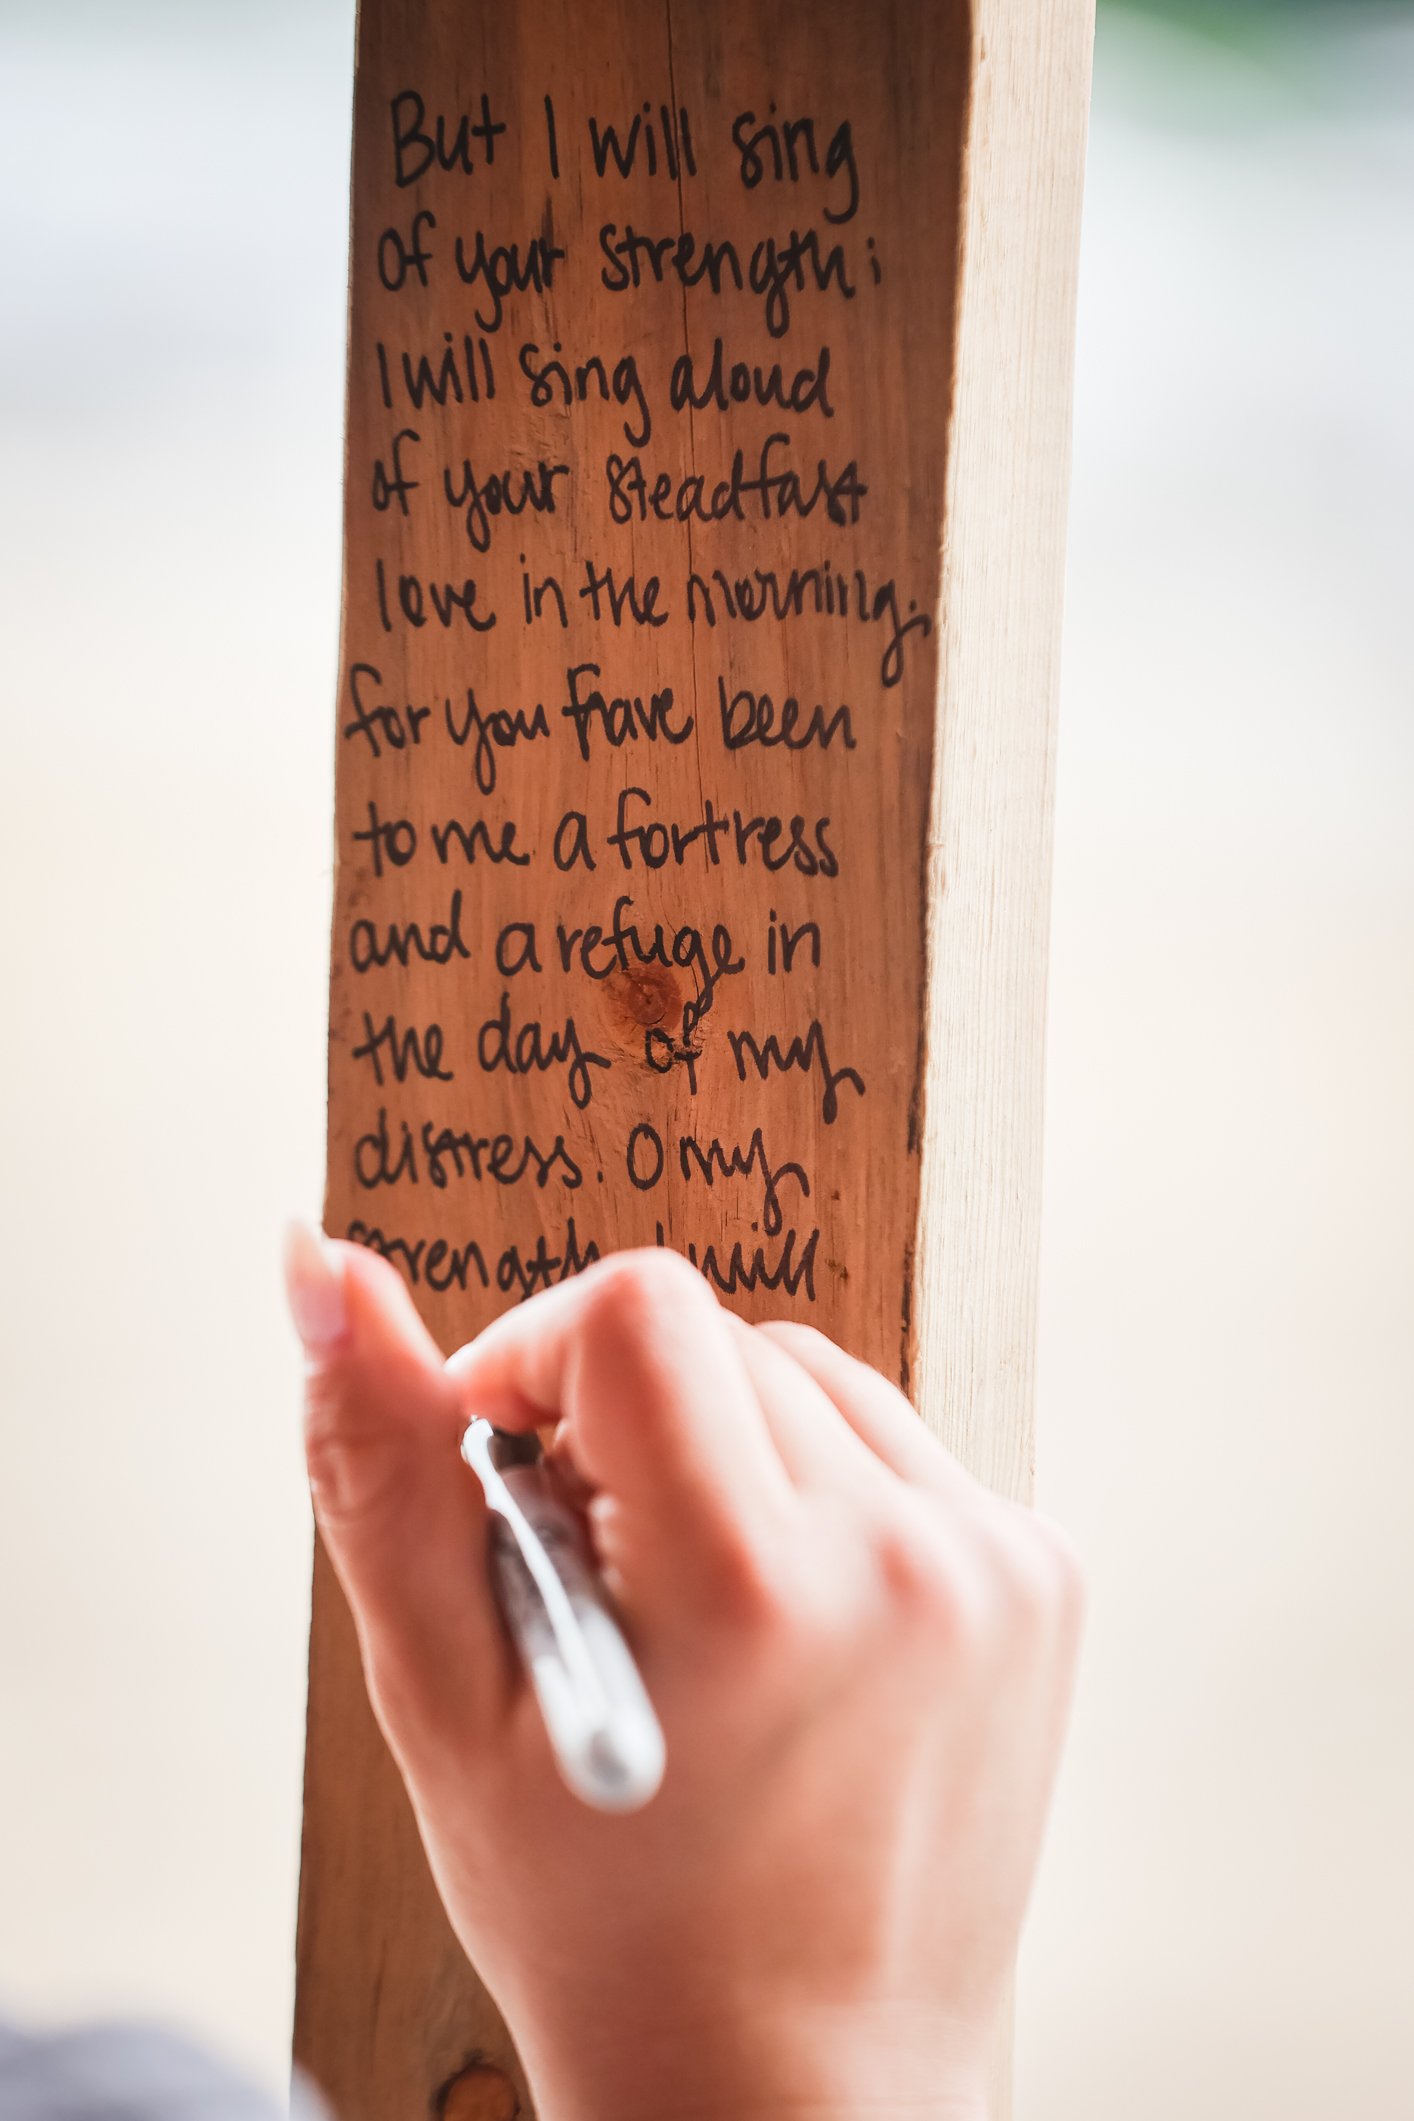 But I will sing
of your strength;
I will sing aloud
of your steadfast
love in the morning.
for you have been
to me a fortress
and a refuge in
the day of my
distress. O my
strength I will